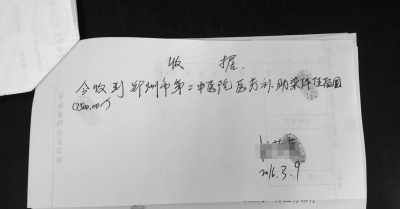 收 据.
今收到郑州市第二中医院医疗补助柒仟伍佰圆
(7500.00)
2016.3.9